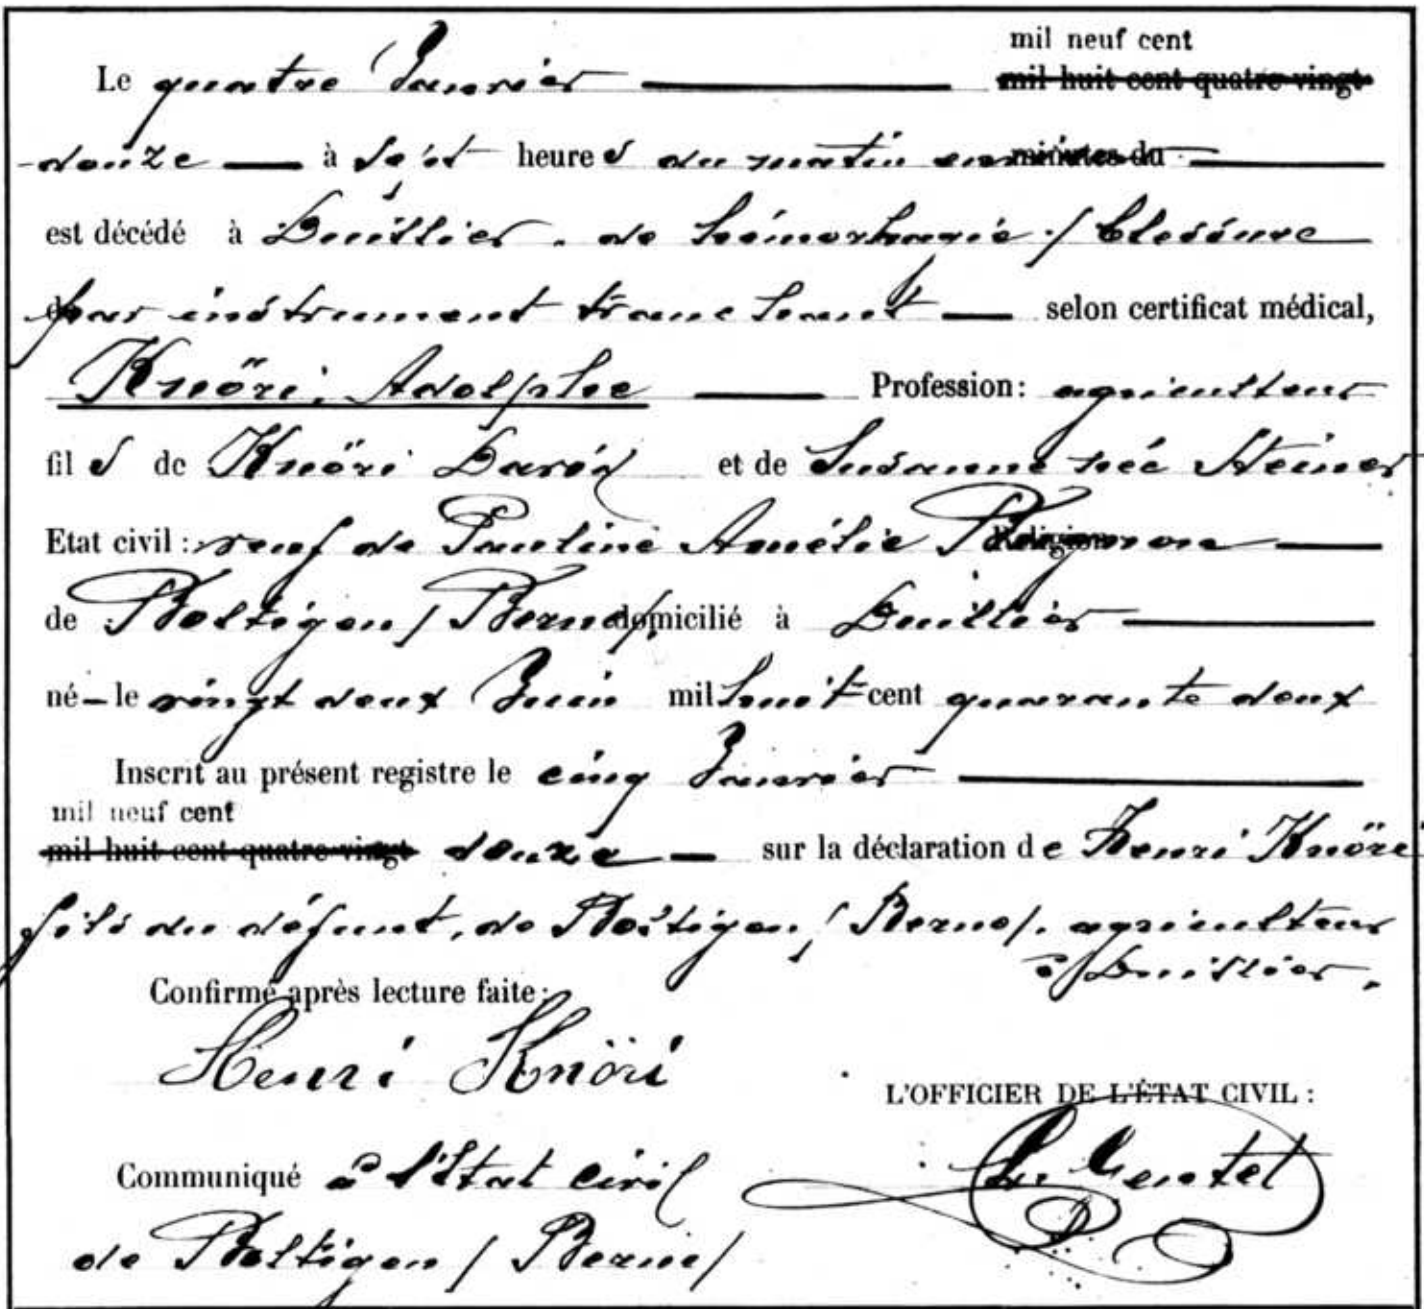 mil neuf cent
Le quatre Janvier mil huit cent quatre-vingt
douze à sept heures du matin minutes du
est décédé à Duillier, de hémorhagie / blessure
par instrument tranchant selon certificat médical,
Knöri, Adolphe Profession: agriculteur
fils de Knöri David et de Susanne née Steiner
Etat civil: veuf de Pauline Amélie Religion
de Boltigen / Berne / domicilié à Duillier
né-le vingt deux Juin mil huit cent quarante deux
Inscrit au présent registre le cinq Janvier
mil neuf cent
mil huit cent quatre-vingt douze sur la déclaration de Henri Knöri
fils du défunt, de Boltigen / Berne /, agriculteur
à Duillier.
Confirmé après lecture faite:
Henri Knöri
L'OFFICIER DE L'ÉTAT CIVIL:
Communiqué à l'Etat civil
de Boltigen / Berne /